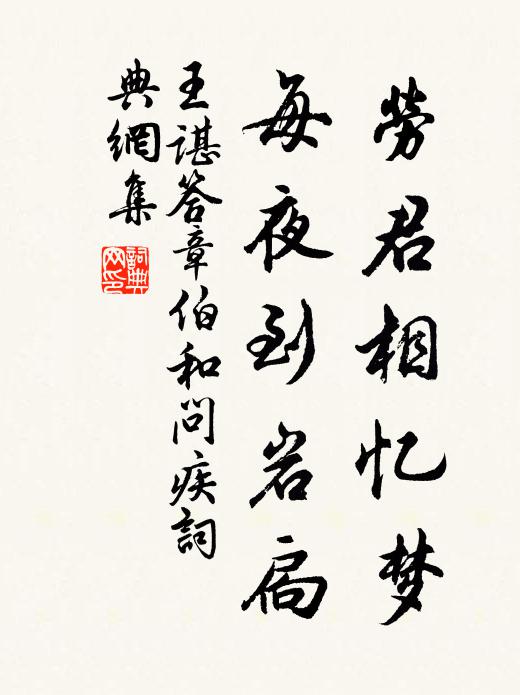 劳君相忆梦
每夜到岩扃
王諶答章伯和問疾詞
典網集
詞典网印